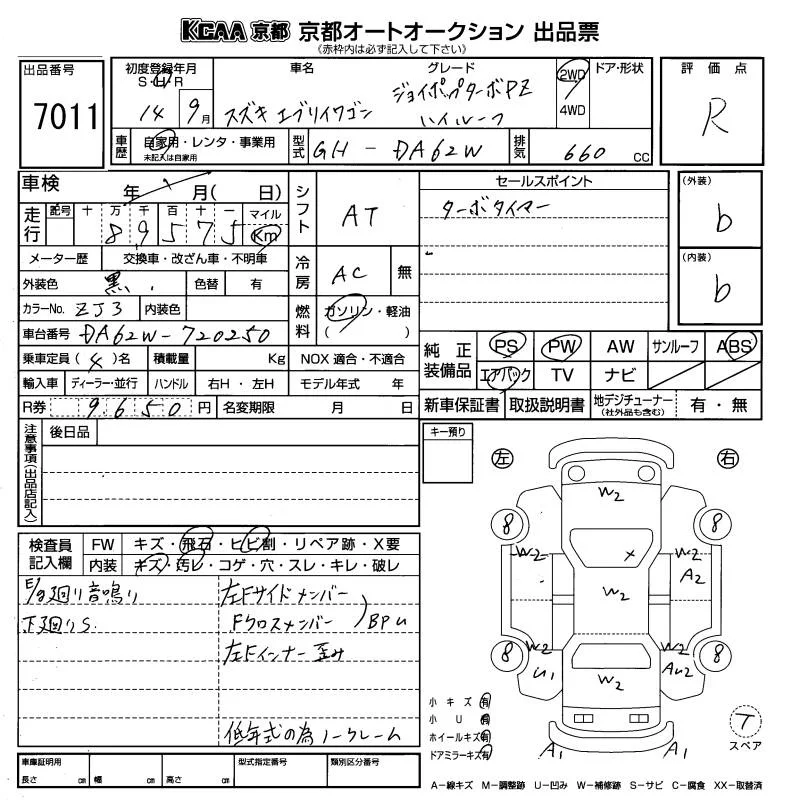 KCAA 京都 京都オートオークション 出品票
《赤枠内は必ず記入して下さい》
出品番号
7011
初度登録年月
S・H・R
14年 9月
車名
スズキ エブリイワゴン
グレード
ジョイポップターボPZ
ハイルーフ
2WD
4WD
ドア・形状
評価点
R
車歴
自家用・レンタ・事業用
未記入は自家用
型式
GH-DA62W
排気
660 cc
車検
年 月( 日)
走行
記号 十 万 千 百 十 一 マイル
8 9 5 7 5 Km
メーター歴 交換車・改ざん車・不明車
外装色 黒. 色替 有
カラーNo. ZJ3 内装色
車台番号 DA62W-720250
乗車定員(4)名 積載量 Kg NOX 適合・不適合
輸入車 ディーラー・並行 ハンドル 右H・左H モデル年式 年
R券 9650円 名変期限 月 日
シフト
AT
冷房
AC 無
燃料
ガソリン・軽油
( )
セールスポイント
ターボタイマー
(外装)
b
(内装)
b
純正装備品
PS PW AW サンルーフ ABS
エアバック TV ナビ
新車保証書 取扱説明書 地デジチューナー 有・無
(社外品も含む)
注意事項(出品店記入)
後日品
キー預り
左 右
検査員記入欄
FW キズ・飛石・ヒビ割・リペア跡・X要
内装 キズ・汚レ・コゲ・穴・スレ・キレ・破レ
E/g廻り音鳴り
下廻りS.
左Fサイドメンバー
Fクロスメンバー
BPU
左Fインナー歪み
低年式の為ノークレーム
W2
8 8
W2 X W2
A2
W2
8 W2 W2 8
U1 AU2
W2
A1 A1
小キズ 有
小U 有
ホイールキズ 有
ドアミラーキズ 有
T
スペア
車庫証明用
長さ cm 幅 cm 高さ cm
型式指定番号
類別区分番号
A-線キズ M-調整跡 U-凹み W-補修跡 S-サビ C-腐食 XX-取替済